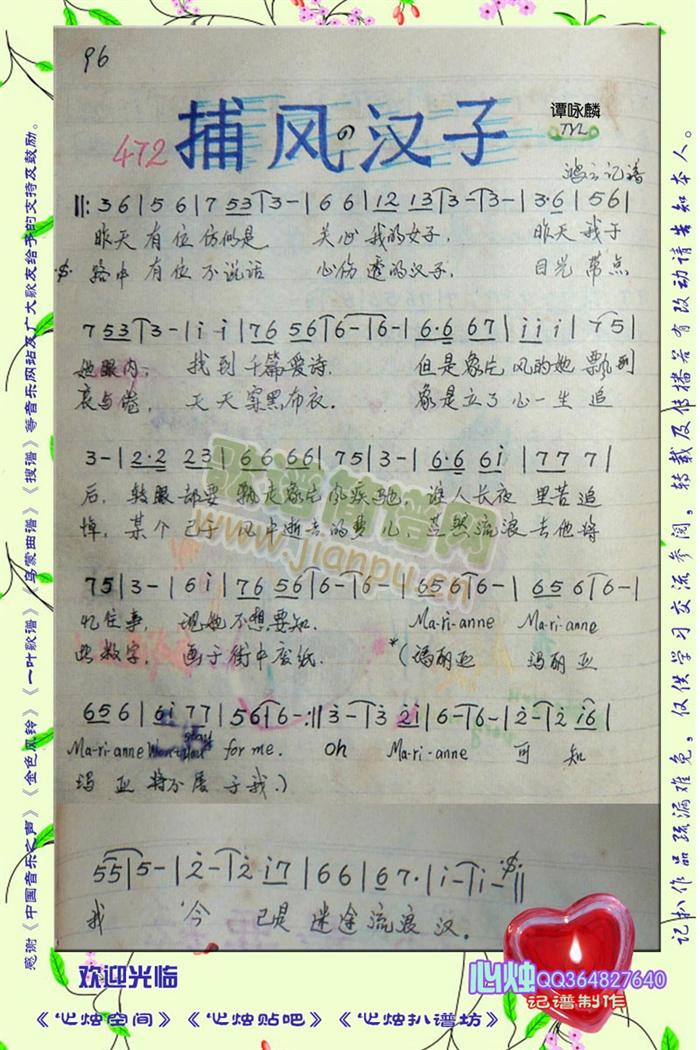 96
472 捕风の汉子
谭咏麟
TYL
鸿云记谱
‖: 3 6 | 5 6 | 7 53 | 3 - | 6 6 | 12 13 | 3 - | 3 - | 3·6 | 56 |
昨天 有位 仿似是 关心 我的女子， 昨天 我于
路中 有位 不说话 心伤 透的汉子， 目光 带点
7 53 | 3 - | i i | 76 56 | 6 - | 6 - | 6·6 67 | i i i | 75 |
她眼内， 找到 千篇爱诗. 但是像片 风的她 飘到
哀与倦， 天天 穿黑布衣. 像是立了 心一生 追
3 - | 2·2 23 | 66 66 | 75 | 3 - | 6·6 6i | 77 7 |
后， 转眼却要 飘走像片 风疾驰， 让人长夜 里苦追
悼， 某个已于 风中逝去 的梦儿， 茫然流浪 去他将
75 | 3 - | 6 i | 76 56 | 6 - | 6 - | 65 6 | 6 - | 65 6 | 6 - |
忆往事， 现她 不想要知. Ma-ri-anne Ma-ri-anne
些数字， 画于 街中废纸. *(玛丽亚 玛丽亚
65 6 | 6i 77 | 56 | 6 - :‖ 3 - | 3 2i | 6 - | 6 - | 2 - | 2 i6 |
Ma-ri-anne Won't you stay for me. oh Ma-ri-anne 可 知
玛 亚 特分居 于我.)
55 | 5 - | 2 - | 2 i7 | 66 | 67· | i - | i - ‖
我 今 已是 迷途 流浪 汉.
感谢《中国音乐之声》《金色风铃》《一叶歌谱》《乌蒙曲谱》《搜谱》等音乐网站及广大歌友给予的支持及鼓励。
记扒作品疏漏难免，仅供学习交流参阅，转载及传播若有改动请告知本人。
歌谱简谱网
www.jianpu.cn
欢迎光临
《心烛空间》《心烛贴吧》《心烛扒谱坊》
心烛QQ364827640
记谱制作